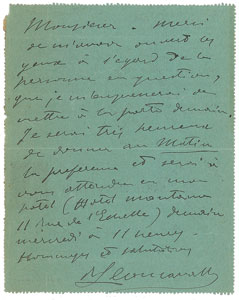 Monsieur. Merci
de m'avoir ouvert les
yeux à l'égard de la
personne en question,
que je m'empresserai de
mettre à la porte demain.
Je serai très heureux
de donner au Matin
la préférence et serai à
vous attendre en mon
hôtel (Hôtel
11 rue de l'Echelle) demain
mercredi à 11 heures.
Hommages et salutations
RLeoncavallo